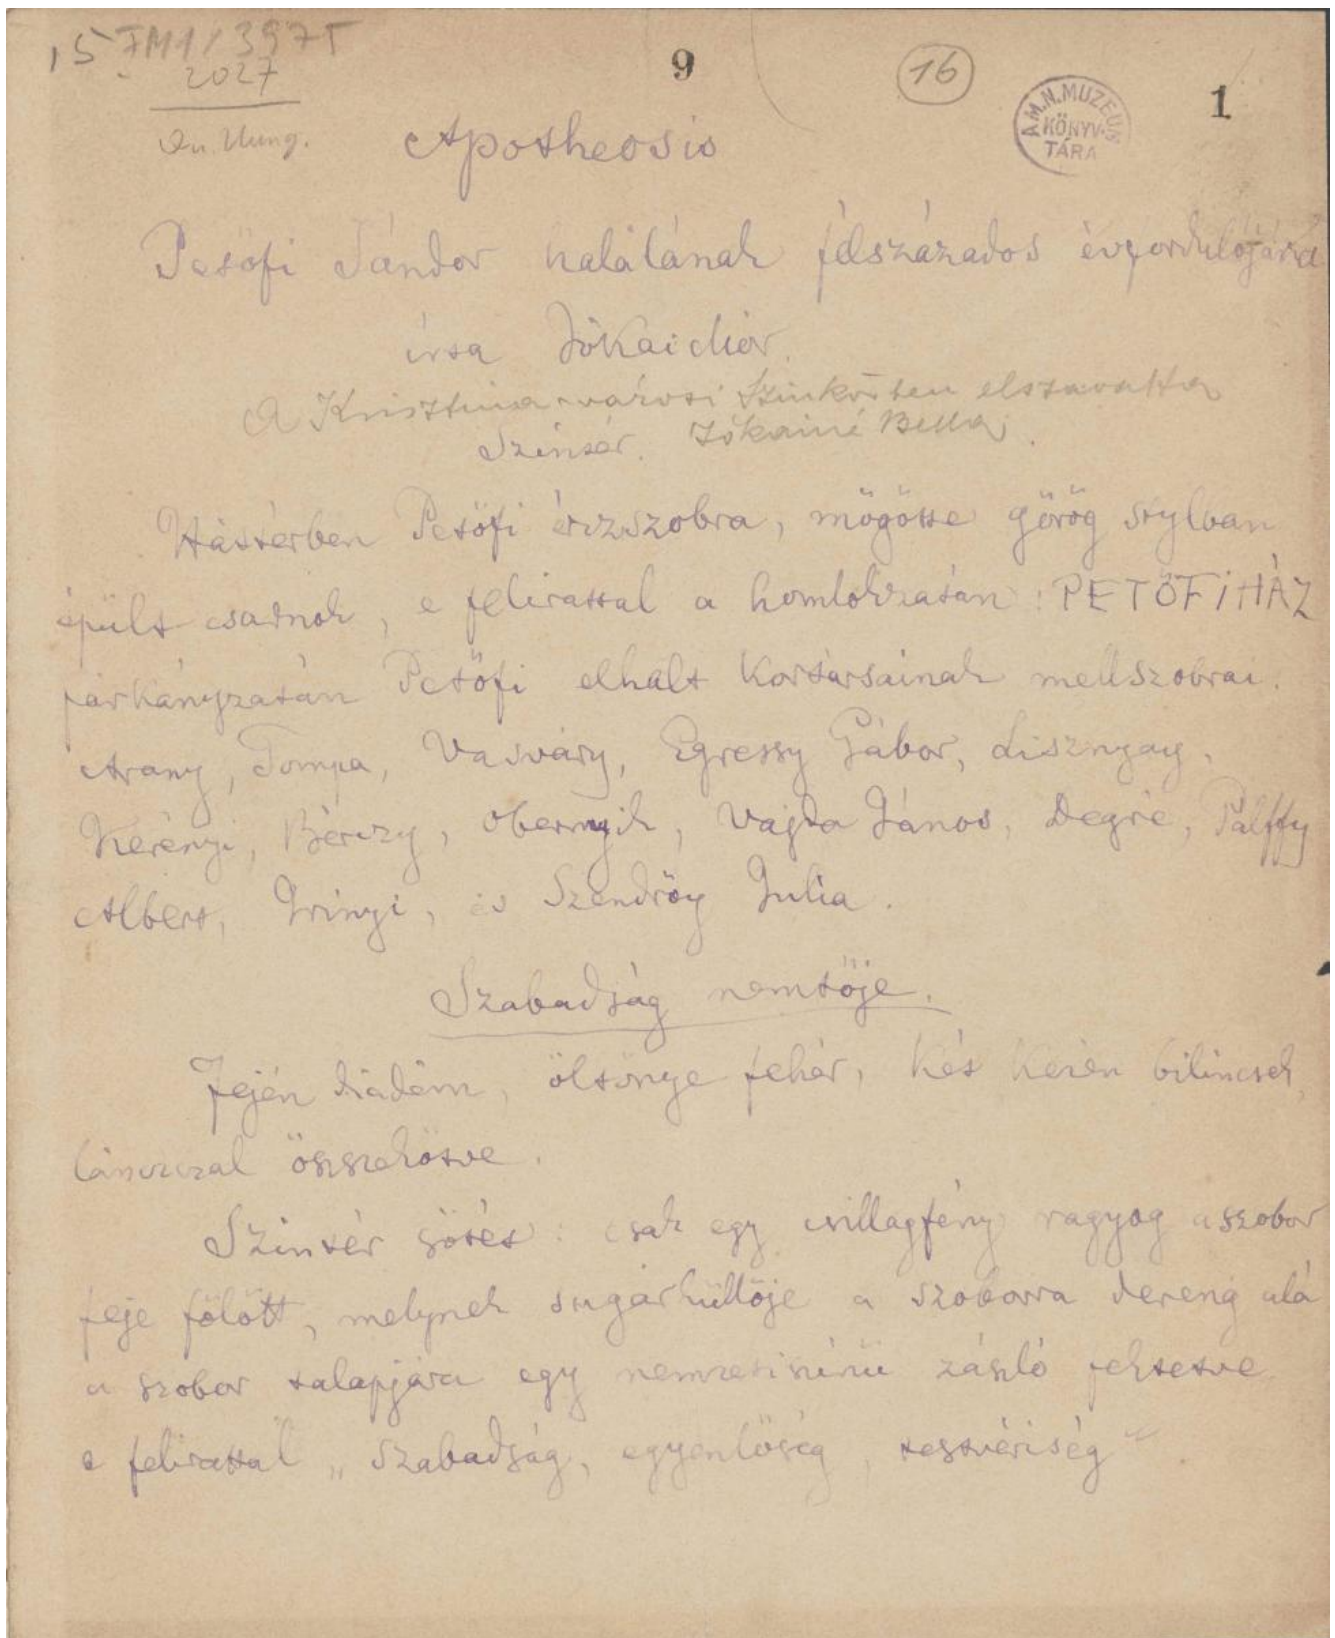 15 FM1/3975
2027
Qu. Hung.
9
16
A.M.N.MUZEUM KÖNYVTÁRA
1
Apotheosis
Petőfi Sándor halálának félszázados évfordulójára
írta Jókai Mór.
A Krisztina-városi Szinkörben elszavalta
Jókainé Bella.
Szintér.
Háttérben Petőfi érczszobra, mögötte görög stylban
épült csarnok, e felirattal a homlokzatán: PETŐFIHÁZ
párkányzatán Petőfi elhalt kortársainak mellszobrai.
Arany, Tompa, Vasváry, Egressy Gábor, Lisznyay,
Kerényi, Bérczy, Obernyik, Vajda János, Degré, Pálffy
Albert, Irinyi, és Szendrőy Julia.
Szabadság nemtője.
Fején diadém, öltönye fehér, két kezén bilincsek,
lánczczal összekötve.
Szintér sötét: csak egy csillagfény ragyog a szobor
feje fölött, melynek sugárküllője a szoborra dereng alá
a szobor talapjára egy nemzetiszínü zászló fektetve
e felirattal „Szabadság, egyenlőség, testvériség".